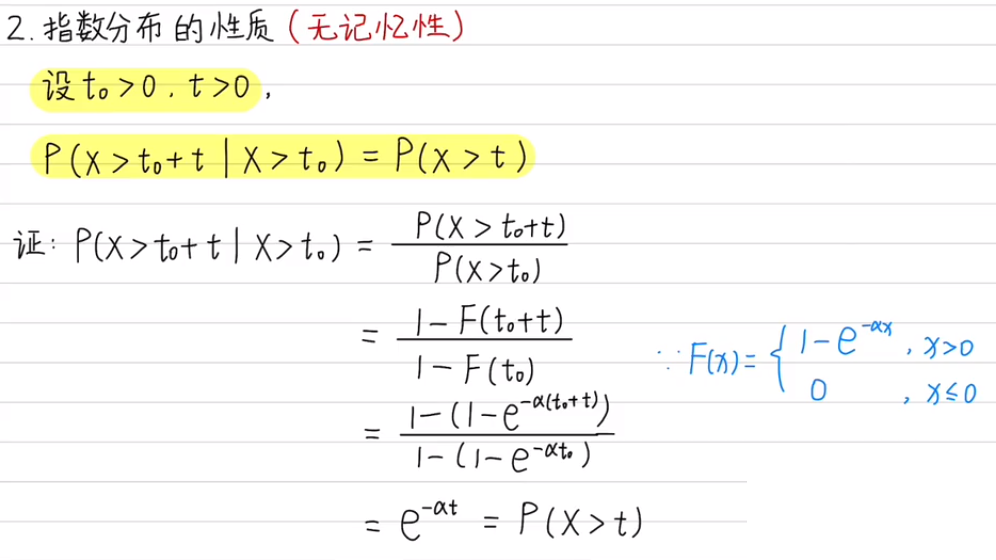 2. 指数分布的性质 (无记忆性)
设 t₀>0, t>0,
P(X>t₀+t | X>t₀) = P(X>t)
证: P(X>t₀+t | X>t₀) = P(X>t₀+t) / P(X>t₀)
= (1-F(t₀+t)) / (1-F(t₀))
∵ F(x) = { 1-e^{-αx}, x>0
0, x≤0
= (1-(1-e^{-α(t₀+t)})) / (1-(1-e^{-αt₀}))
= e^{-αt} = P(X>t)